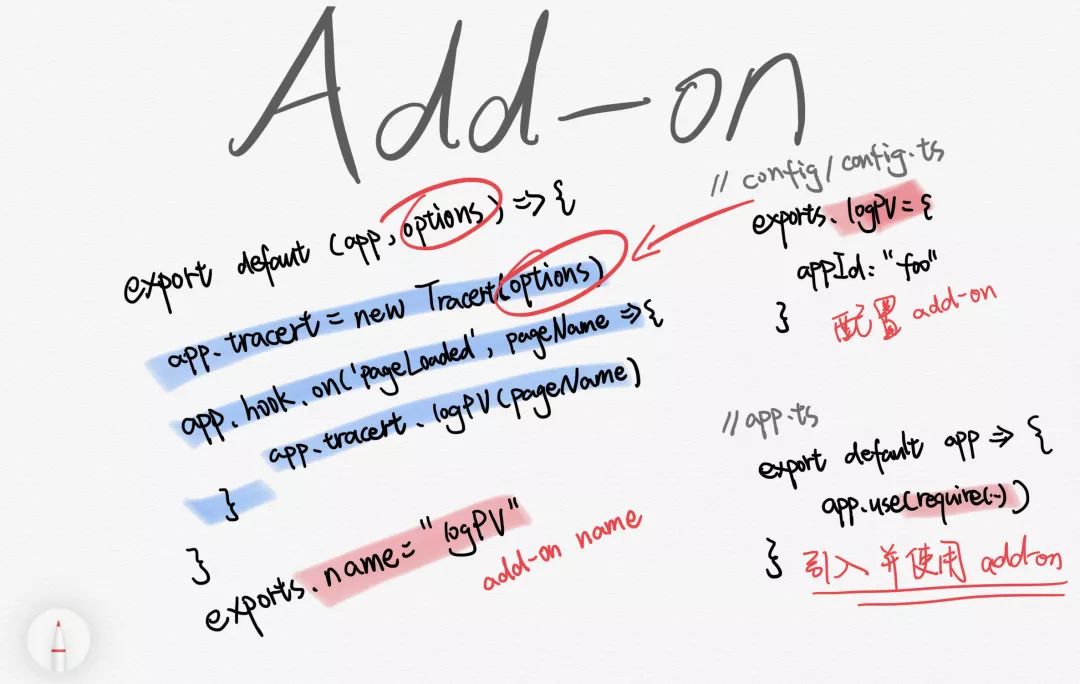 Add-on
export defaut (app, options) => {
app.tracert = new Tracert(options)
app.hook.on('pageLoaded', pageName => {
app.tracert.logPV(pageName)
}
}
exports.name = "logPV"
add-on name
// config/config.ts
exports.logPV = {
appId: "foo"
}
配置 add-on
// app.ts
export default app => {
app.use(require(..))
}
引入并使用 add-on